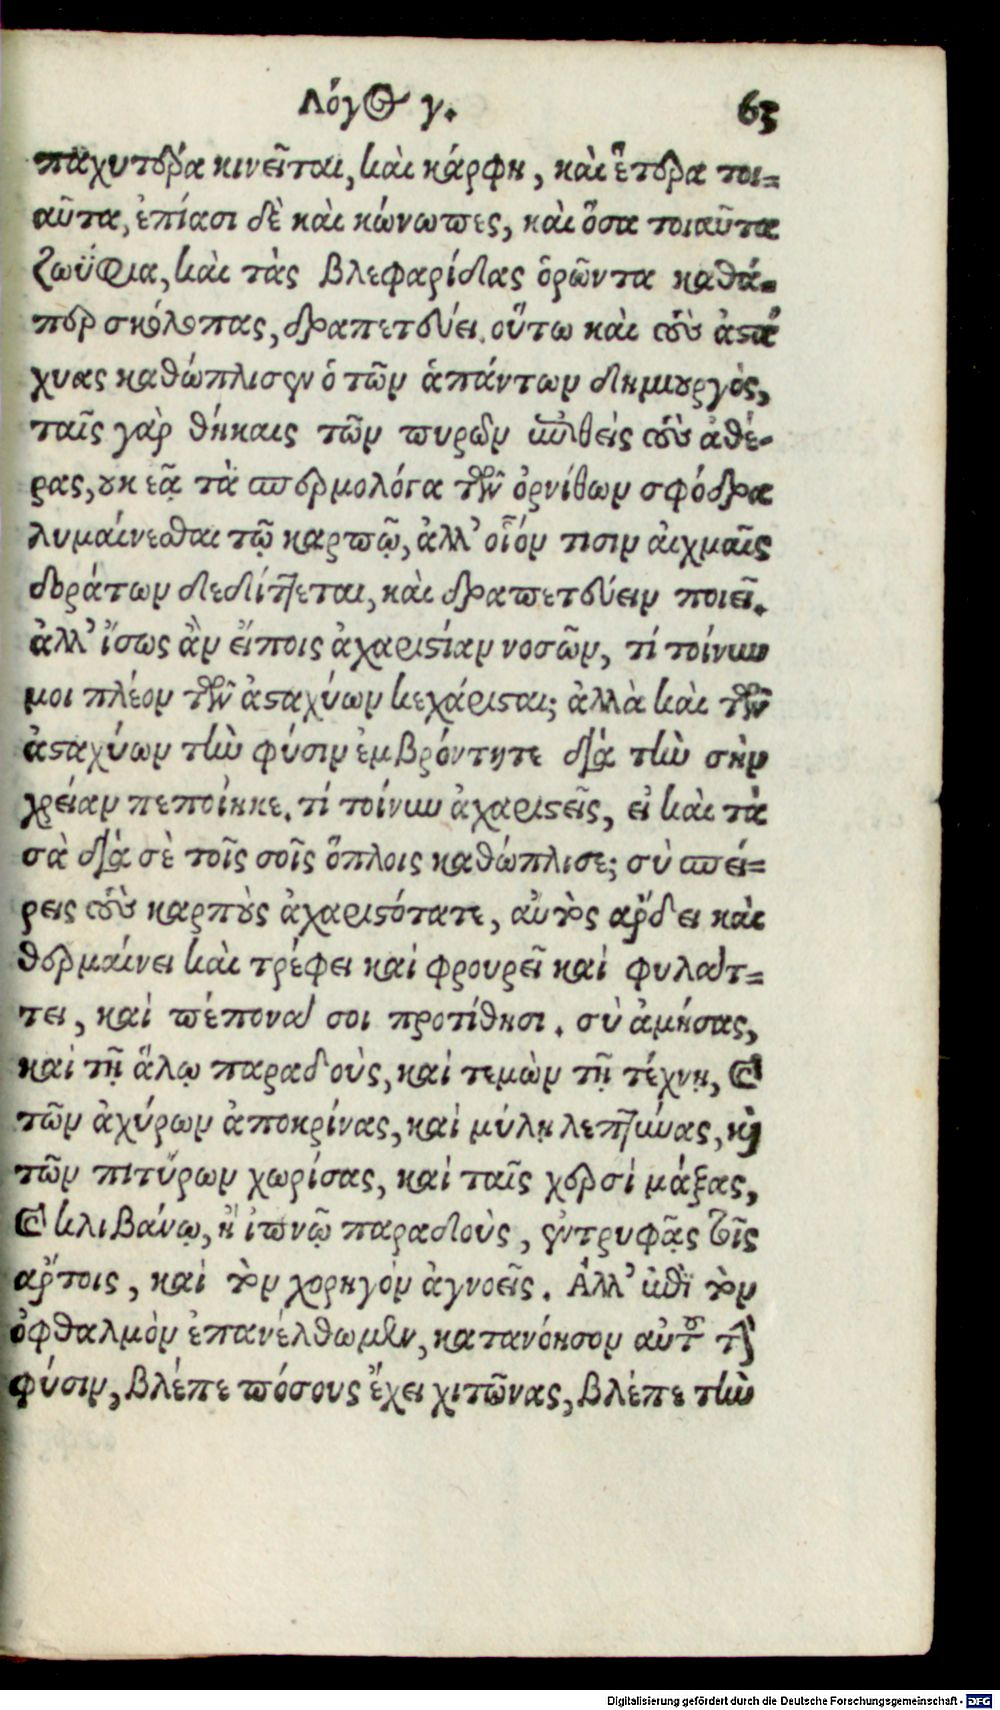 Λόγος γ. 63
παχυτέρα κινεῖται, καὶ κάρφη, καὶ ἕτερα τοι-
αῦτα, ἐπίασι δὲ καὶ κώνωπες, καὶ ὅσα τοιαῦτα
ζωΰφια, καὶ τὰς βλεφαρίδας ὁρῶντα καθά-
περ σκόλοπας, δραπετεύει. οὕτω καὶ τοὺς ἀστά
χυας καθώπλισεν ὁ τῶν ἁπάντων δημιουργὸς,
ταῖς γὰρ θήκαις τῶν πυρῶν συνθεὶς τοὺς ἀθέ-
ρας, οὐκ ἐᾷ τὰ σπερμολόγα τῶν ὀρνίθων σφόδρα
λυμαίνεσθαι τῷ καρπῷ, ἀλλ' οἷόν τισιν αἰχμαῖς
δοράτων δεδίττεται, καὶ δραπετεύειν ποιεῖ.
ἀλλ' ἴσως ἂν εἴποις ἀχαριστίαν νοσῶν, τί τοίνυν
μοι πλέον τῶν ἀσταχύων κεχάρισται; ἀλλὰ καὶ τῶν
ἀσταχύων τὴν φύσιν ἐμβρόντητε διὰ τὴν σὴν
χρείαν πεποίηκε. τί τοίνυν ἀχαριστεῖς, εἰ καὶ τὰ
σὰ διὰ σὲ τοῖς σοῖς ὅπλοις καθώπλισε; σὺ σπεί-
ρεις τοὺς καρποὺς ἀχαριστότατε, αὐτὸς ἄρδει καὶ
θερμαίνει καὶ τρέφει καὶ φρουρεῖ καὶ φυλάτ-
τει, καὶ πέπονά σοι προτίθησι. σὺ ἀμήσας,
καὶ τῇ ἅλῳ παραδοὺς, καὶ τεμὼν τῇ τέχνῃ, καὶ
τῶν ἀχύρων ἀποκρίνας, καὶ μύλῃ λεπτύνας, καὶ
τῶν πιτύρων χωρίσας, καὶ ταῖς χερσὶ μάξας,
καὶ κλιβάνῳ, ἢ ἰπνῷ παραδοὺς, ἐντρυφᾷς τοῖς
ἄρτοις, καὶ τὸν χορηγὸν ἀγνοεῖς. Ἀλλ' ἐπὶ τὸν
ὀφθαλμὸν ἐπανέλθωμεν, κατανόησον αὐτοῦ τὴν
φύσιν, βλέπε πόσους ἔχει χιτῶνας, βλέπε τὴν
Digitalisierung gefördert durch die Deutsche Forschungsgemeinschaft - DFG